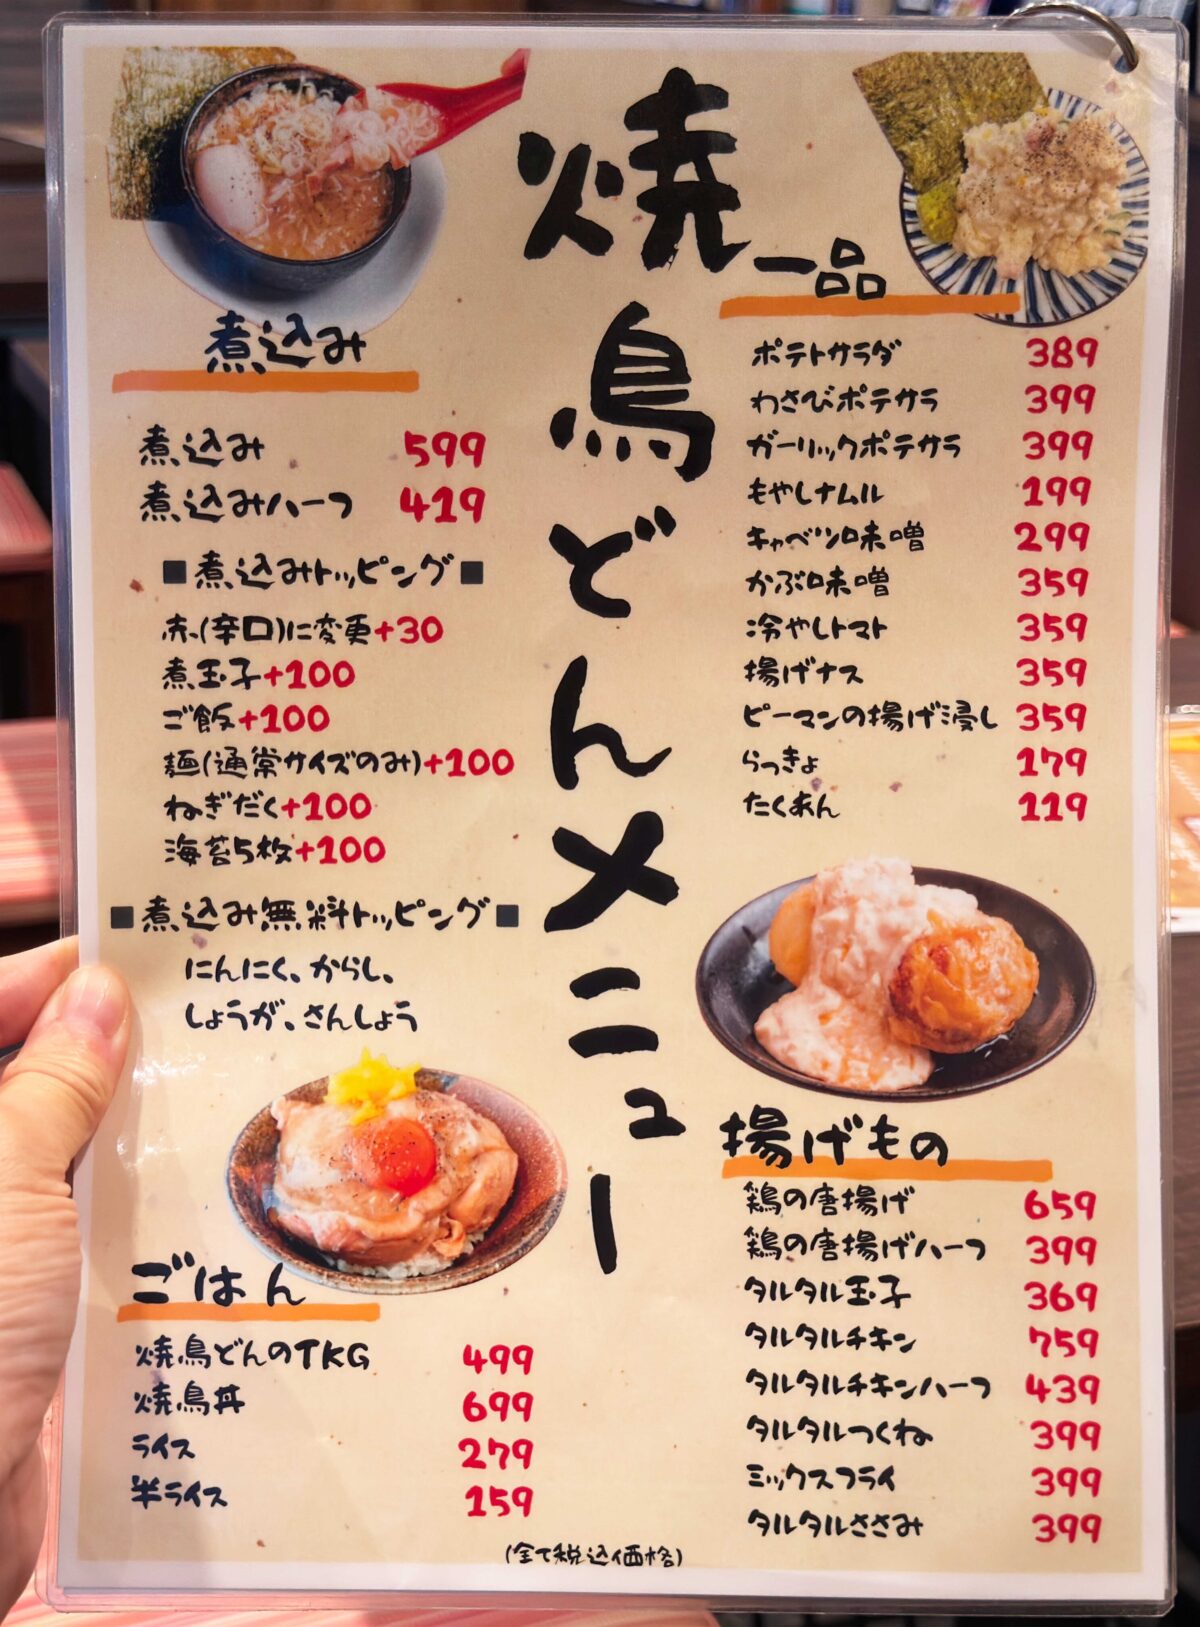 焼鳥どんメニュー
煮込み
煮込み 599
煮込みハーフ 419
■煮込みトッピング■
赤(辛口)に変更+30
煮玉子+100
ご飯+100
麺(通常サイズのみ)+100
ねぎだく+100
海苔5枚+100
■煮込み無料トッピング■
にんにく、からし、
しょうが、さんしょう
ごはん
焼鳥どんのTKG 499
焼鳥丼 699
ライス 279
半ライス 159
一品
ポテトサラダ 389
わさびポテサラ 399
ガーリックポテサラ 399
もやしナムル 199
キャベツ味噌 299
かぶ味噌 359
冷やしトマト 359
揚げナス 359
ピーマンの揚げ浸し 359
らっきょ 179
たくあん 119
揚げもの
鶏の唐揚げ 659
鶏の唐揚げハーフ 399
タルタル玉子 369
タルタルチキン 759
タルタルチキンハーフ 439
タルタルつくね 399
ミックスフライ 399
タルタルささみ 399
(全て税込価格)